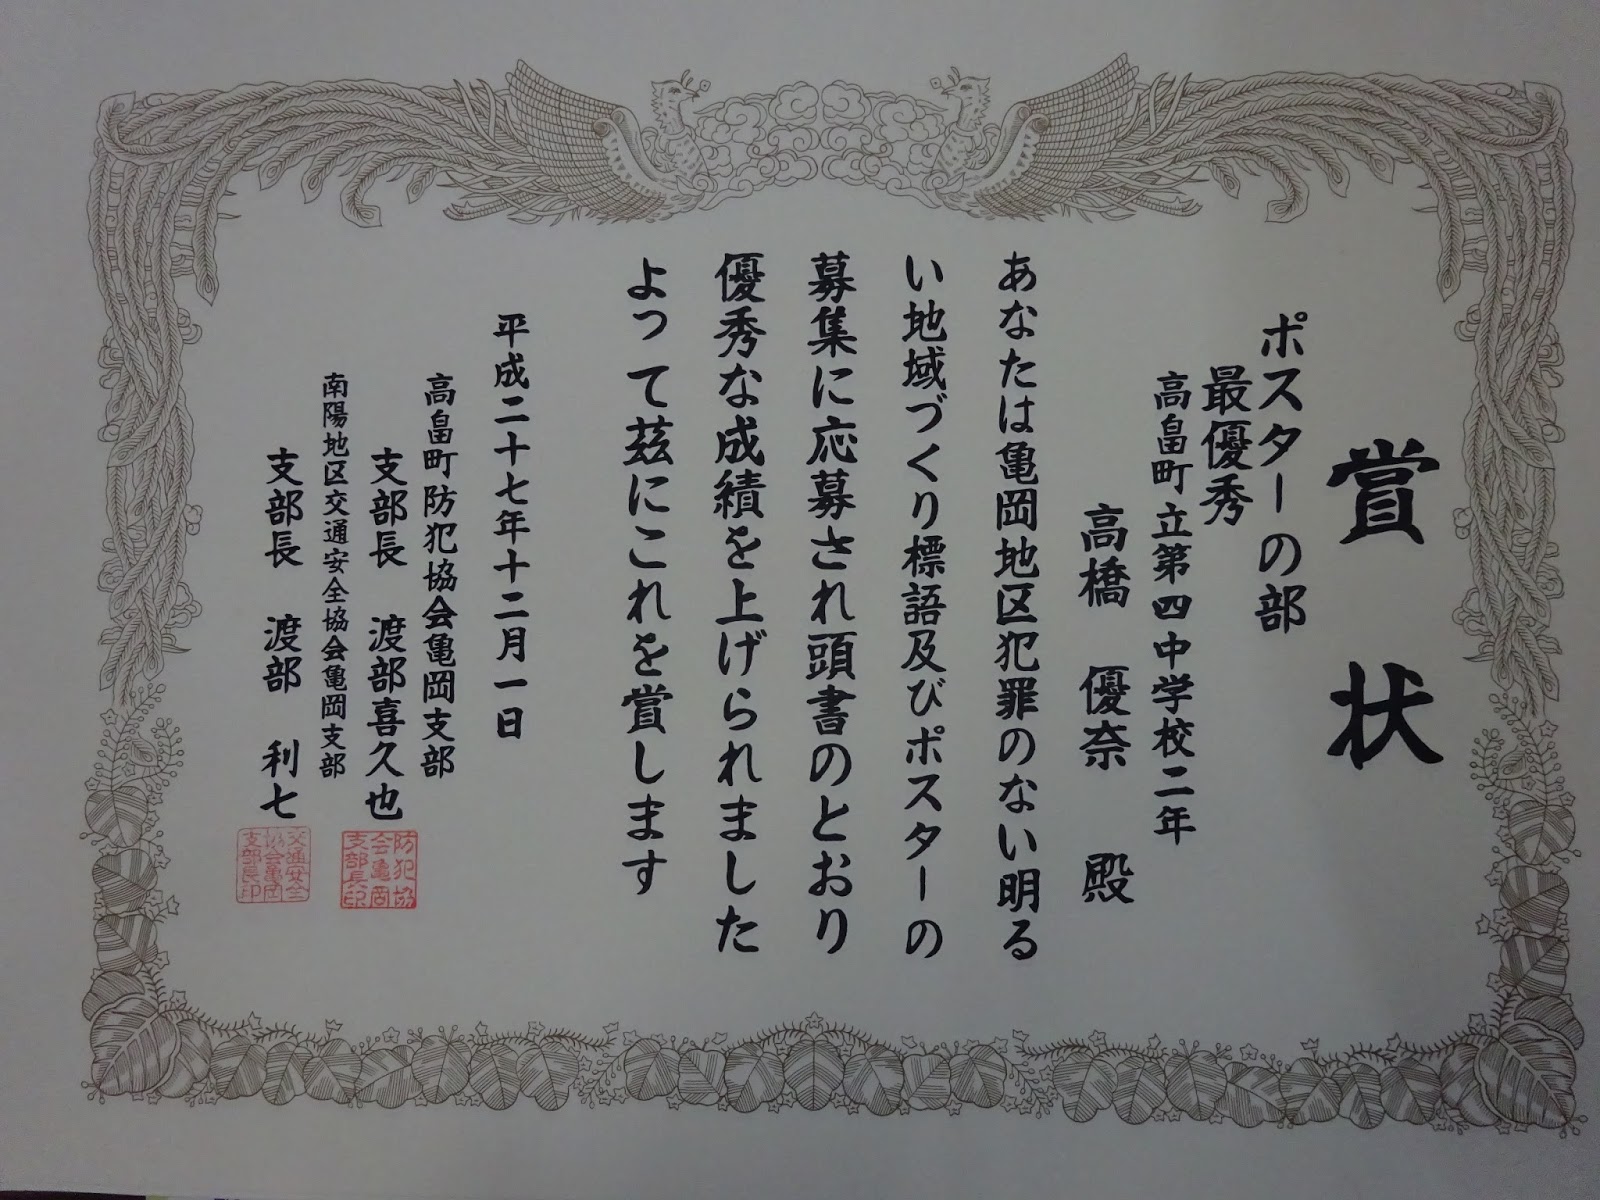 賞状
ポスターの部
最優秀
高畠町立第四中学校二年
高橋 優奈 殿
あなたは亀岡地区犯罪のない明る
い地域づくり標語及びポスターの
募集に応募され頭書のとおり
優秀な成績を上げられました
よって茲にこれを賞します
平成二十七年十二月一日
高畠町防犯協会亀岡支部
支部長 渡部喜久也
南陽地区交通安全協会亀岡支部
支部長 渡部 利七
防犯協
会亀岡
支部長印
交通安全
協会亀岡
支部長印